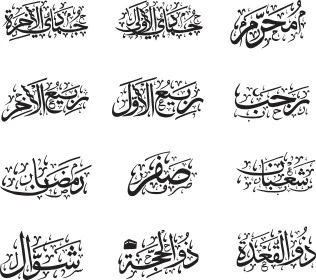 مُحَرَّم جمادى الأولى جمادى الآخرة
رجب ربيع الأول ربيع الآخر
شعبان صفر رمضان
ذو القعدة ذو الحجة شوال